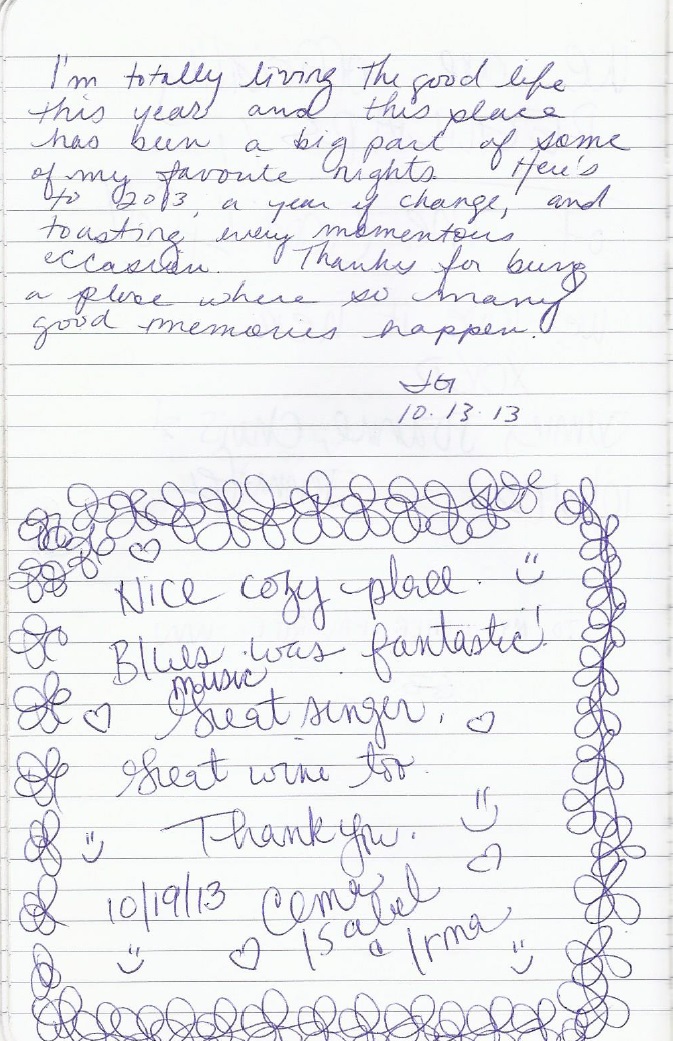 I'm totally living the good life
this year and this place
has been a big part of some
of my favorite nights. Here's
to 2013, a year of change, and
toasting every momentous
occasion. Thanks for being
a place where so many
good memories happen.
JG
10.13.13
Nice cozy place.
Blues was fantastic!
music
Great singer.
Great wine too.
Thank you.
10/19/13
Isabel
Irma